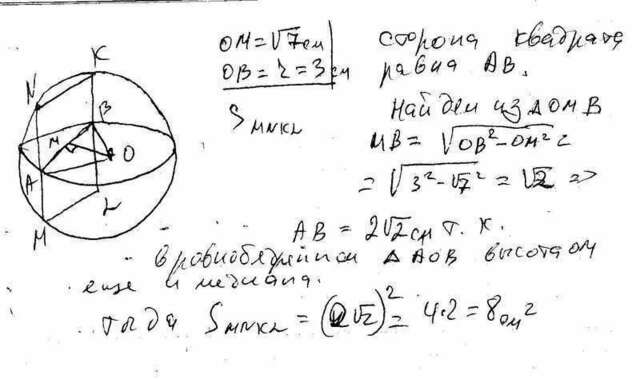 OM = √7 см
OB = r = 3 см
S MNKL
сторона квадрата
равна AB.
Найдем из △OMB
MB = √OB² - OM² =
= √3² - √7² = √2 =>
AB = 2√2 см т. к.
в равнобедренном △AOB высота OM
еще и медиана.
тогда S MNKL = (2√2)² = 4·2 = 8 см²
K
N
B
M
O
A
L
M